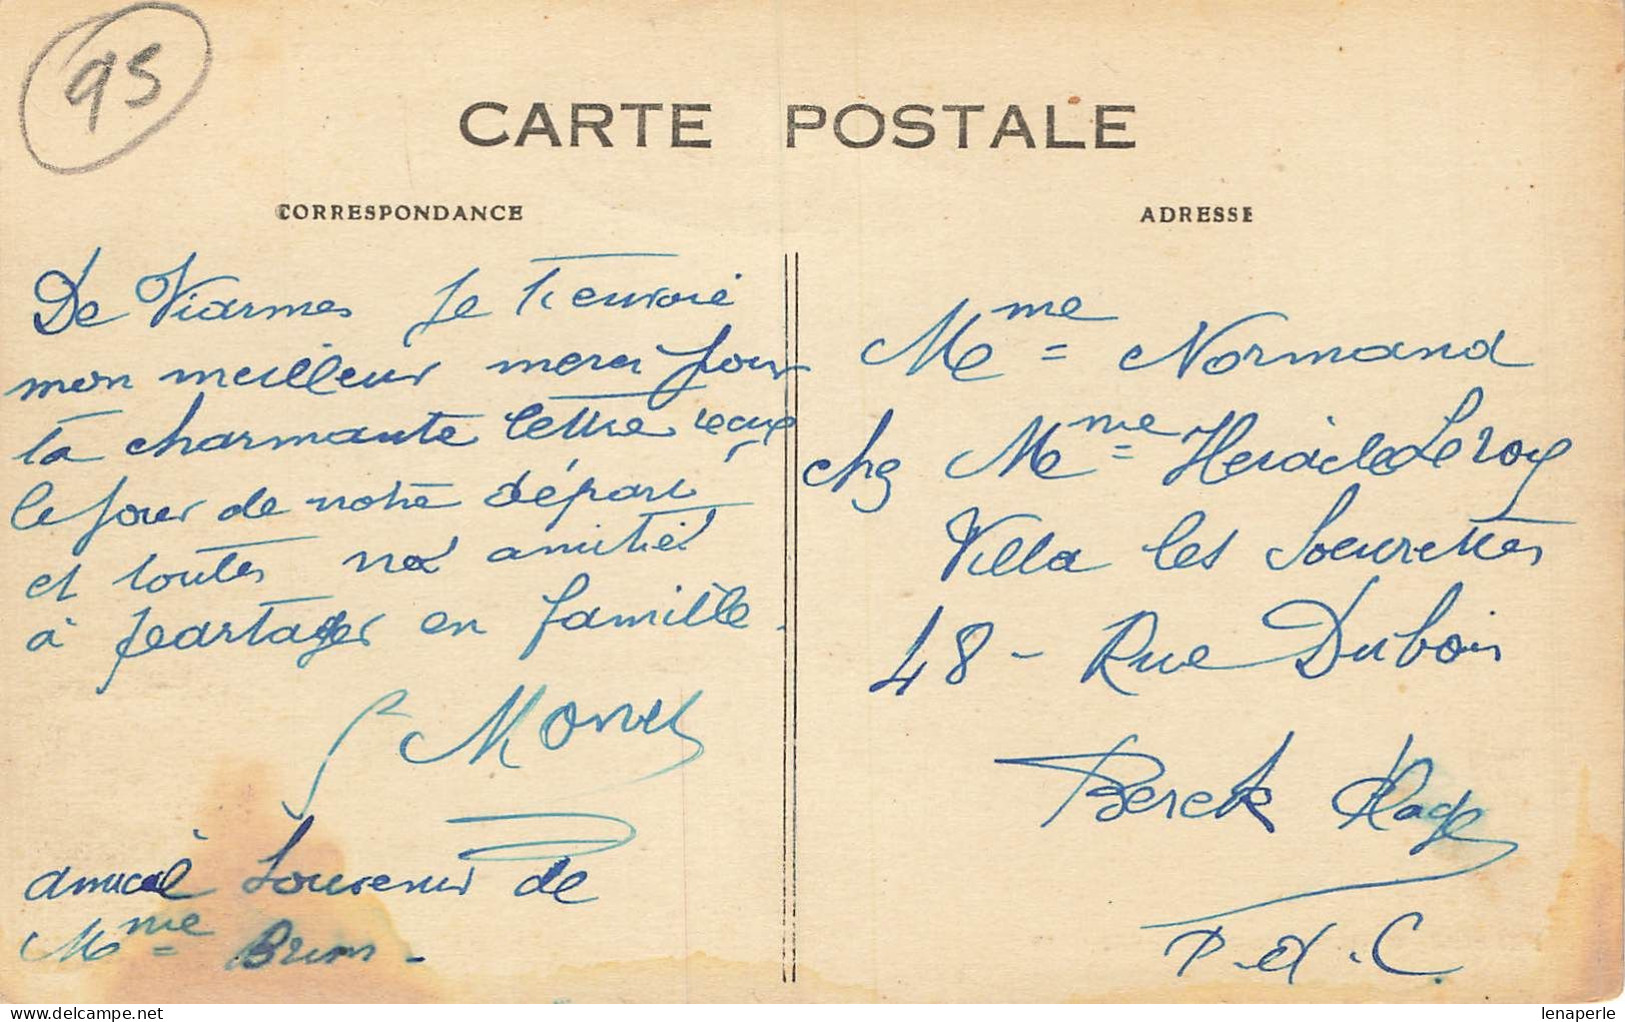 95
CARTE POSTALE
CORRESPONDANCE
ADRESSE
De Viarmes je t'envoie
mon meilleur merci pour
ta charmante lettre reçue
le jour de notre départ
et toutes nos amitiés
à partager en famille.
amical Souvenir de
Mme =
Mme = Normand
chez Mme = Leroy
Villa les Soeurettes
48 - Rue Dubois
Berck Plage
P. d. C.
delcampe.net
lenaperle